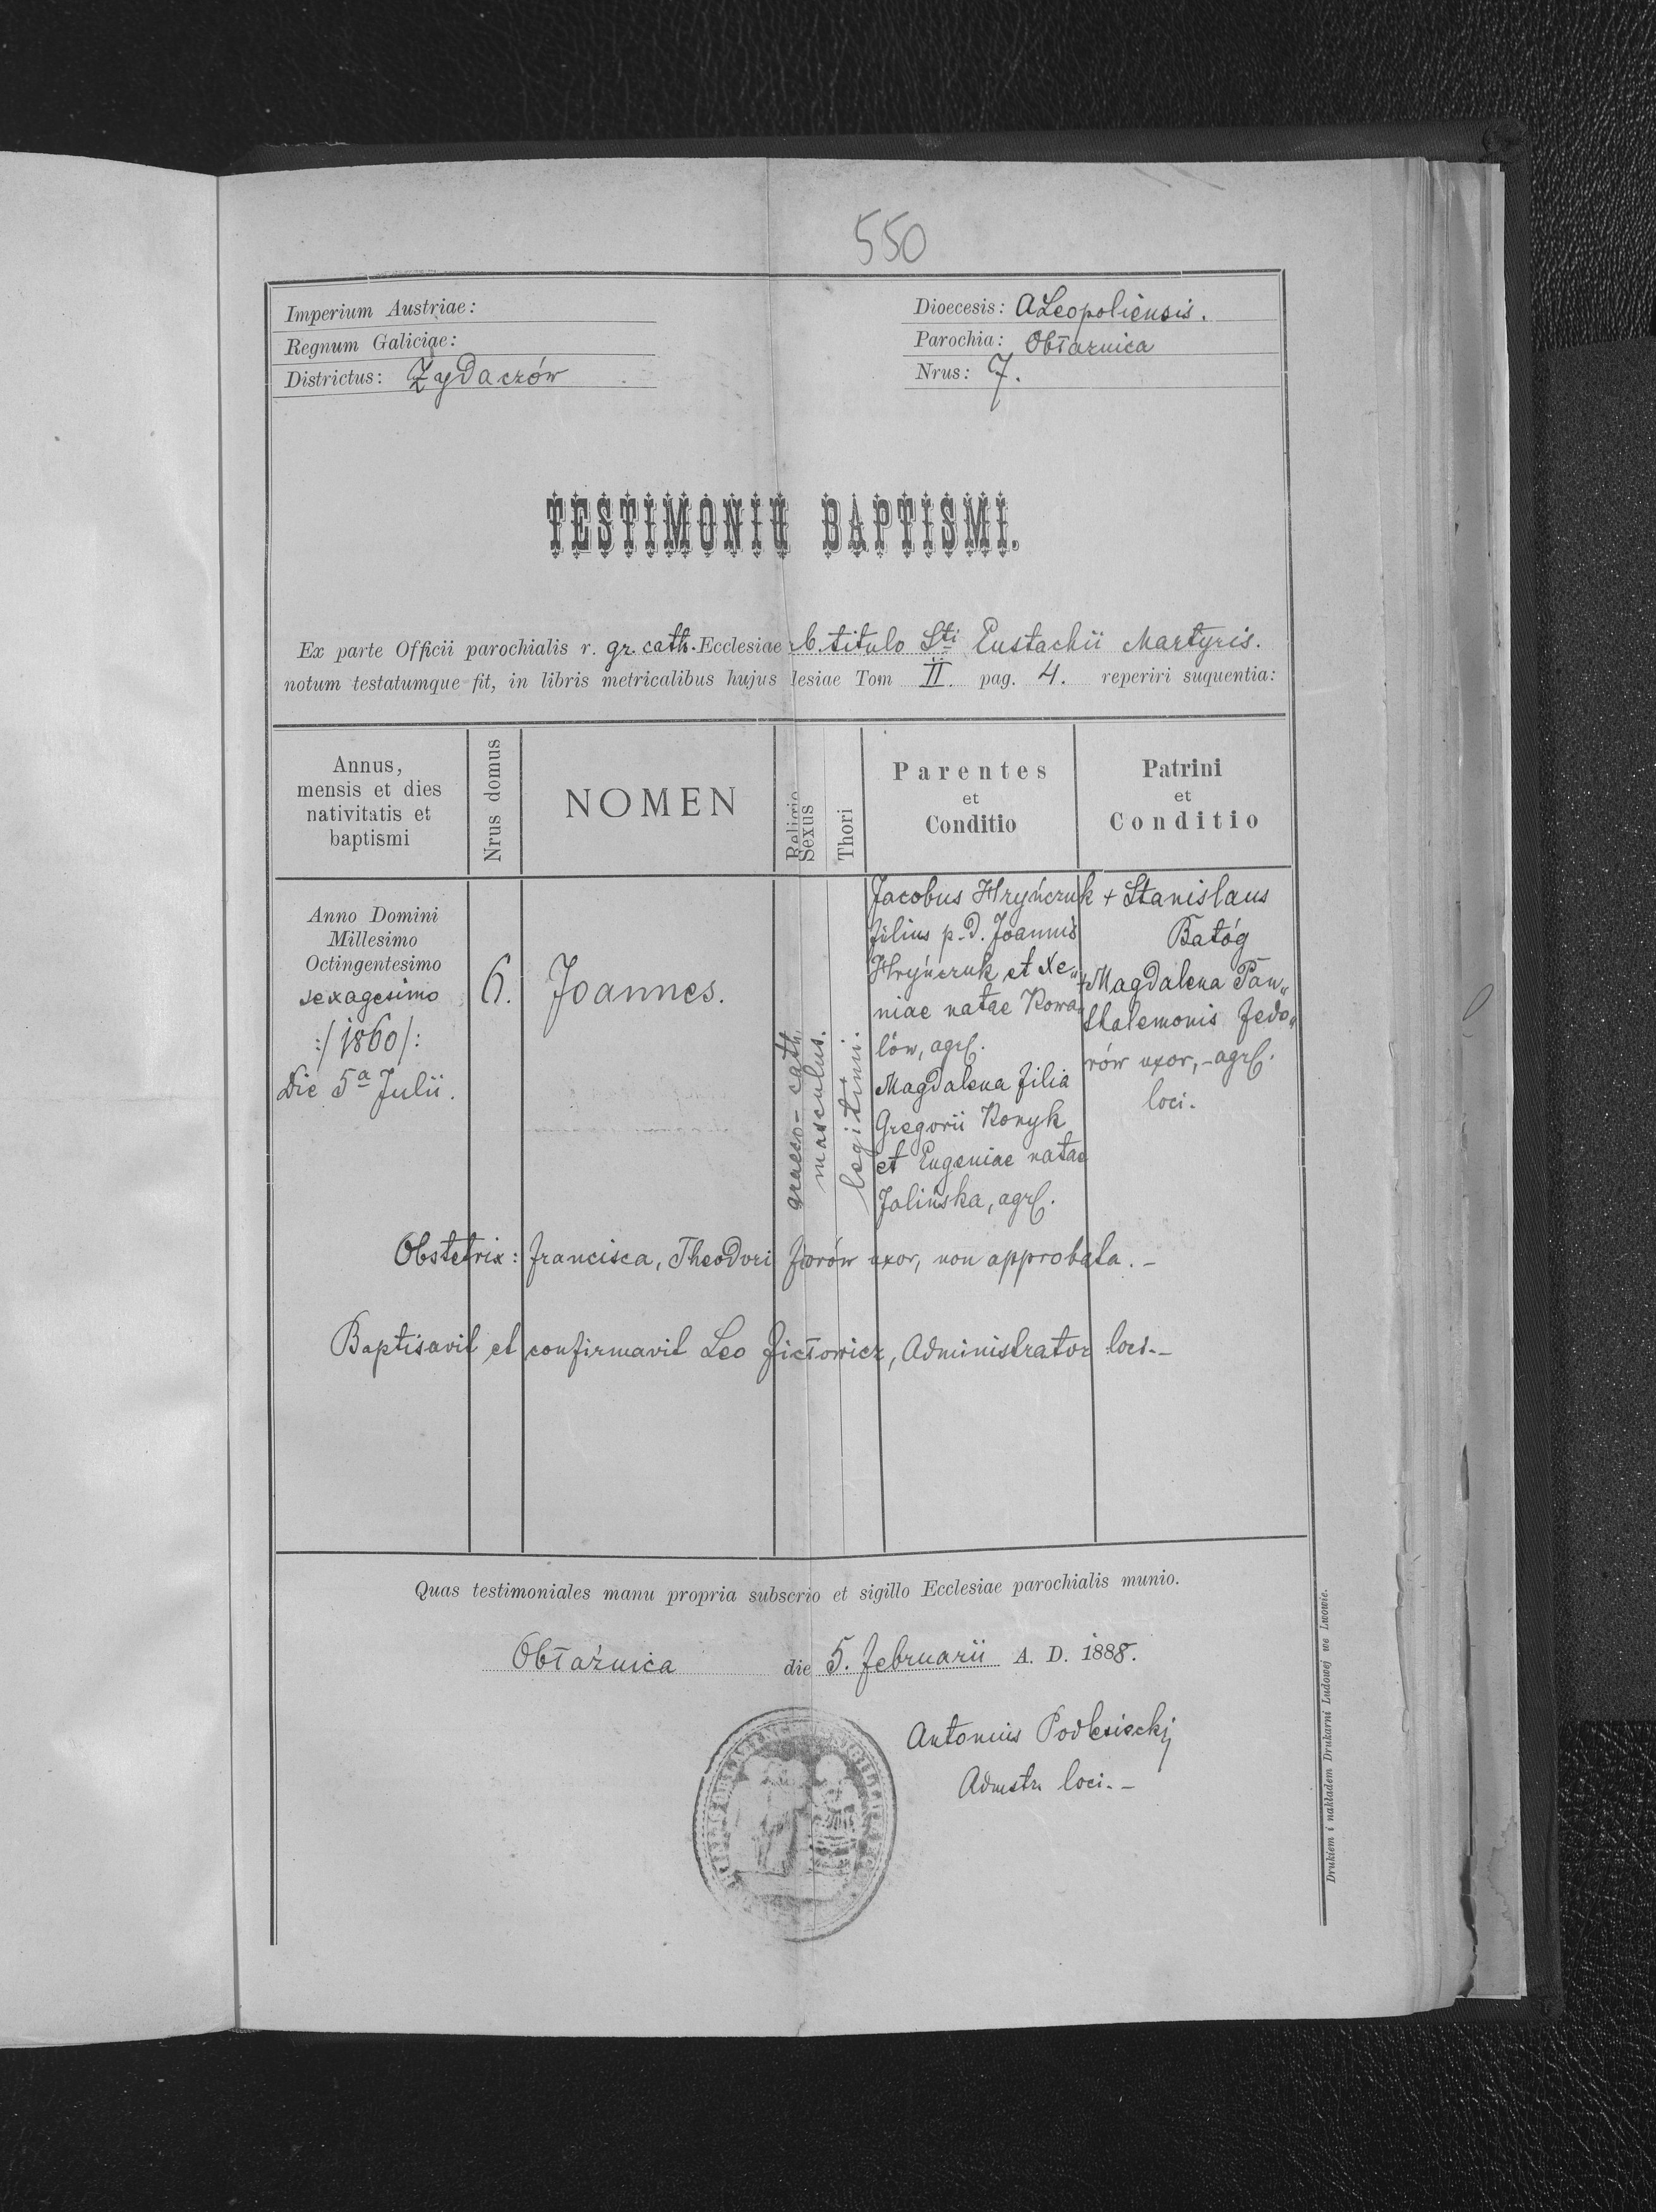 550
Imperium Austriae:
Regnum Galiciae:
Districtus: Żydaczów
Dioecesis: ALeopoliensis.
Parochia: Obłaźnica
Nrus: 7.
TESTIMONIU BAPTISMI.
Ex parte Officii parochialis r. gr. cath. Ecclesiae b. titulo Sti Eustachii Martyris.
notum testatumque fit, in libris metricalibus hujus lesiae Tom II. pag. 4. reperiri suquentia:
Annus,
mensis et dies
nativitatis et
baptismi
Nrus domus
NOMEN
Religio
Sexus
Thori
Parentes
et
Conditio
Patrini
et
Conditio
Anno Domini
Millesimo
Octingentesimo
sexagesimo
:/1860/:
Die 5a Julii.
6.
Joannes.
graeco-cath.
masculus.
legitimi.
Jacobus Hryńczuk
filius p.d. Joannis
Hryńczuk et Xe„
niae natae Kowa„
lów, agrl.
Magdalena filia
Gregorii Konyk
et Eugeniae natae
Jalińska, agrl.
+ Stanislaus
Batóg
+ Magdalena Pan„
thalemonis Fedo„
rów uxor, - agrl.
loci.
Obstetrix: Francisca, Theodori uxor, non approbata. -
Baptisavit et confirmavit Leo Ficłowicz, Administrator loci. -
Quas testimoniales manu propria subscrio et sigillo Ecclesiae parochialis munio.
Obłaźnica die 5. Februarii A. D. 1888.
Antonius Podlesieckij
Admstr loci. -
Drukiem i nakładem Drukarni Ludowej we Lwowie.